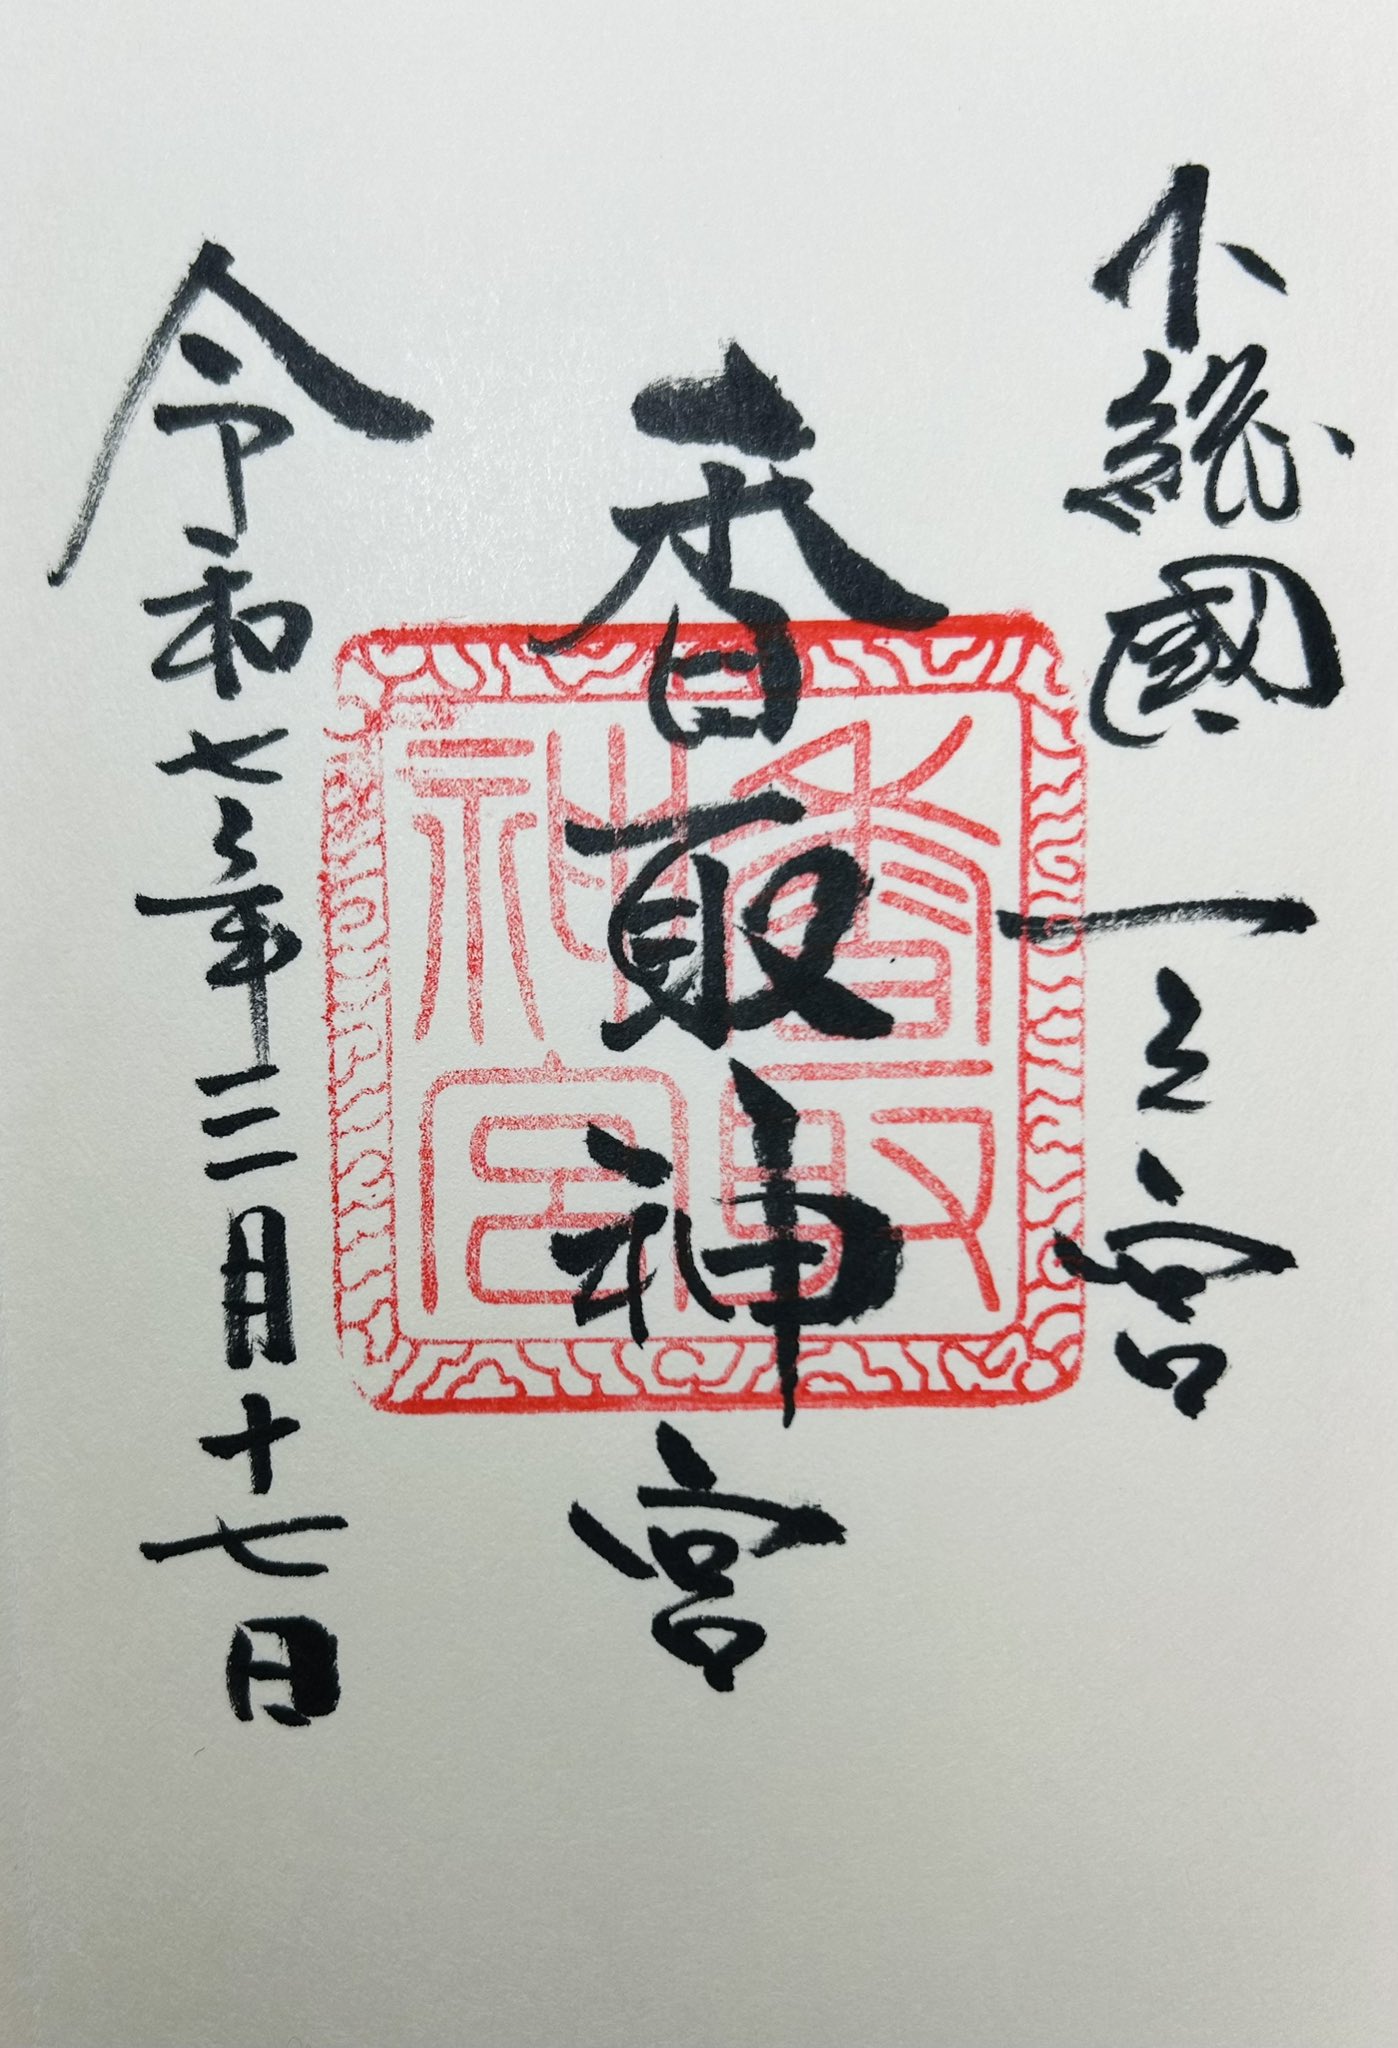 下総國一之宮
香取神宮
令和七年三月十七日
香取
神宮